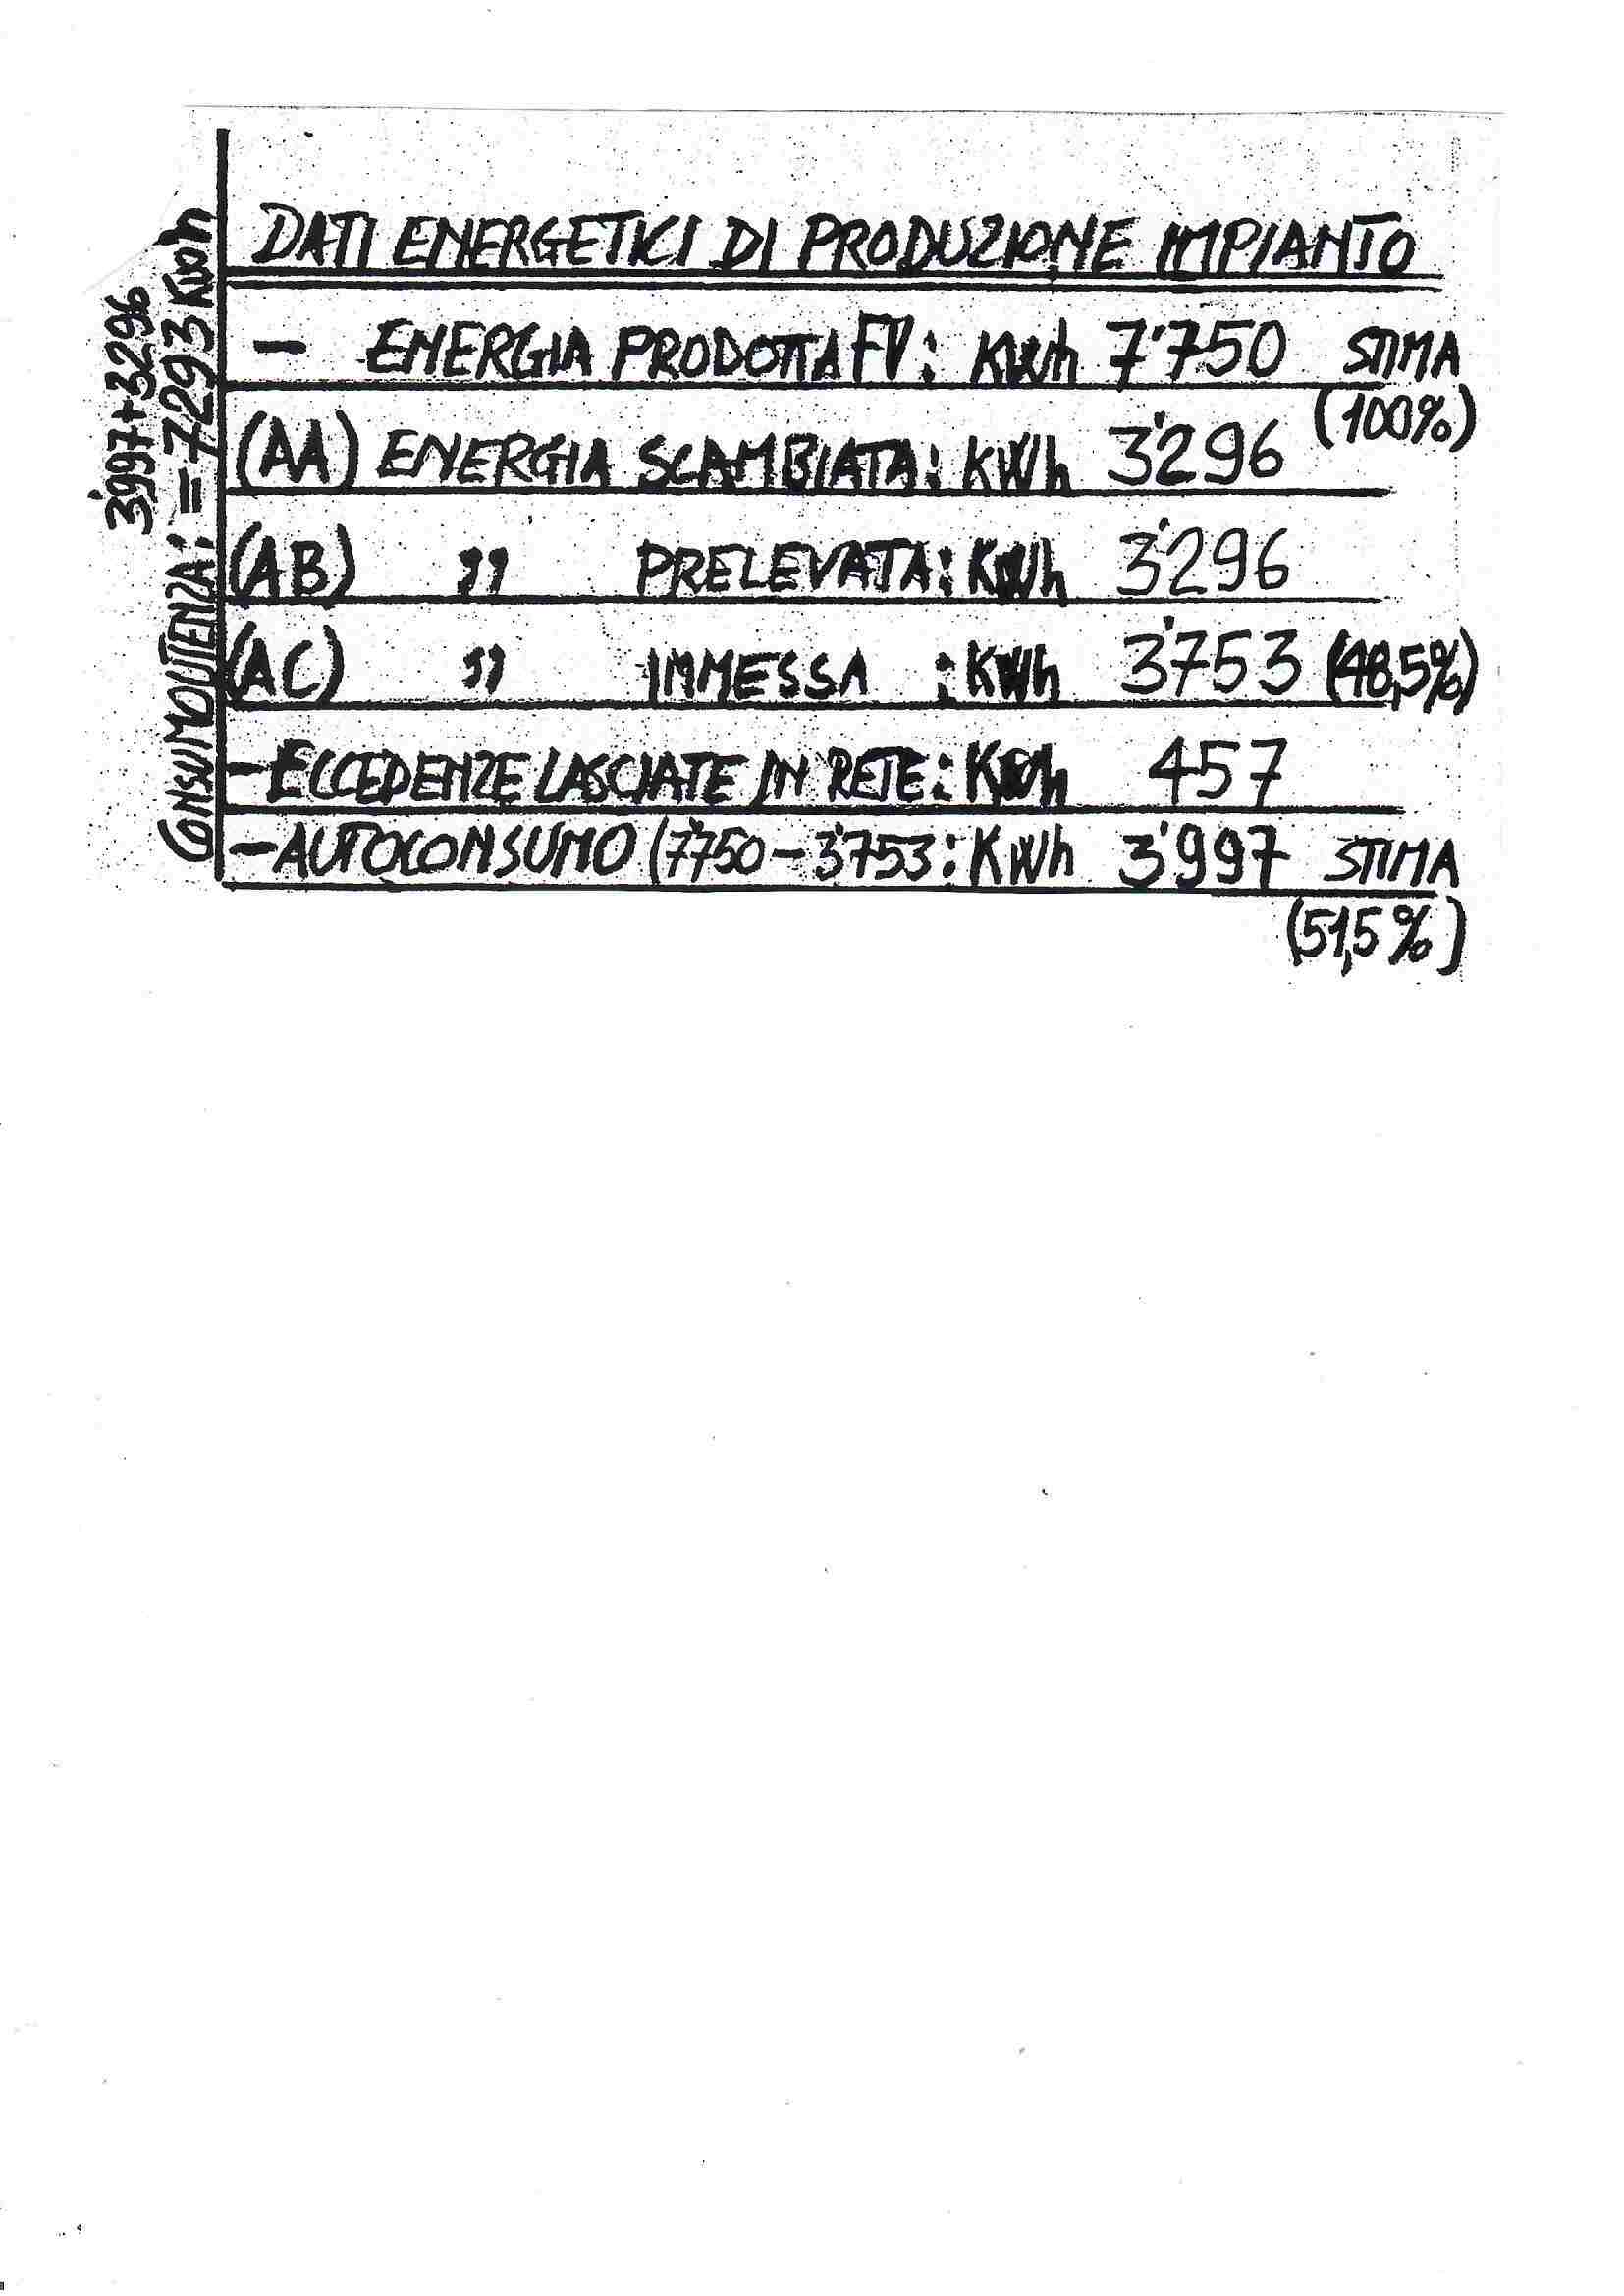 DATI ENERGETICI DI PRODUZIONE IMPIANTO
- ENERGIA PRODOTTA FV: KWh 7'750 STIMA
(100%)
(AA) ENERGIA SCAMBIATA: KWh 3'296
(AB) " PRELEVATA: KWh 3'296
(AC) " IMMESSA : KWh 3'753 (48,5%)
- ECCEDENZE LASCIATE IN RETE: KWh 457
- AUTOCONSUMO (7'750-3'753: KWh 3'997 STIMA
(51,5%)
3'997+3296
CONSUMO UTENZA: = 7293 KWh